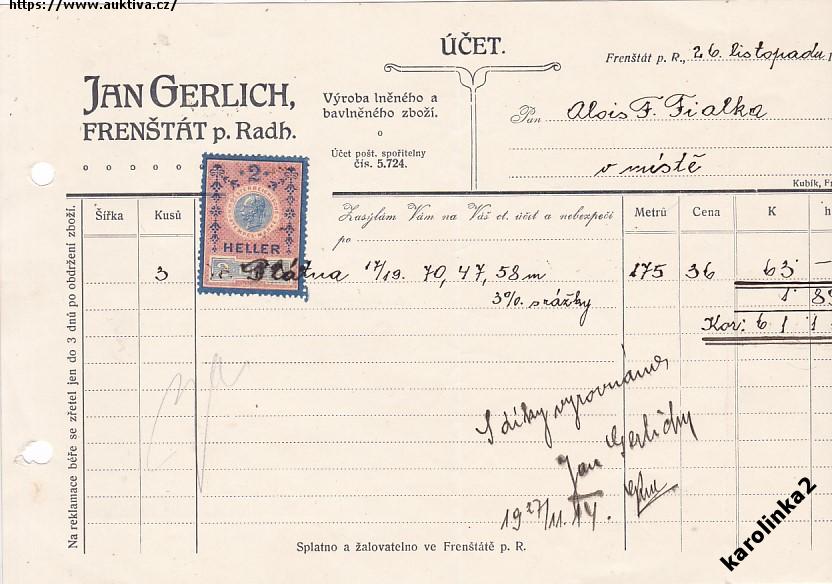 https://www.auktiva.cz/
ÚČET.
JAN GERLICH,
FRENŠTÁT p. Radh.
Výroba lněného a
bavlněného zboží.
Účet pošt. spořitelny
čís. 5.724.
Frenštát p. R., 26 listopadu 1
Pan Alois F. Fialka
v místě
Kubík, Fr
Šířka Kusů
Zasýlám Vám na Váš ct. účet a nebezpečí
po
Metrů Cena K h
2
HELLER
3 Plátna 17/19. 70, 47, 58 m 175 36 63 –
3% srážky 1 89
Kor: 61 1
S díky vyrovnáno
Jan Gerlich
19 27/11. 14.
Na reklamace béře se zřetel jen do 3 dnů po obdržení zboží.
Splatno a žalovatelno ve Frenštátě p. R.
karolinka2